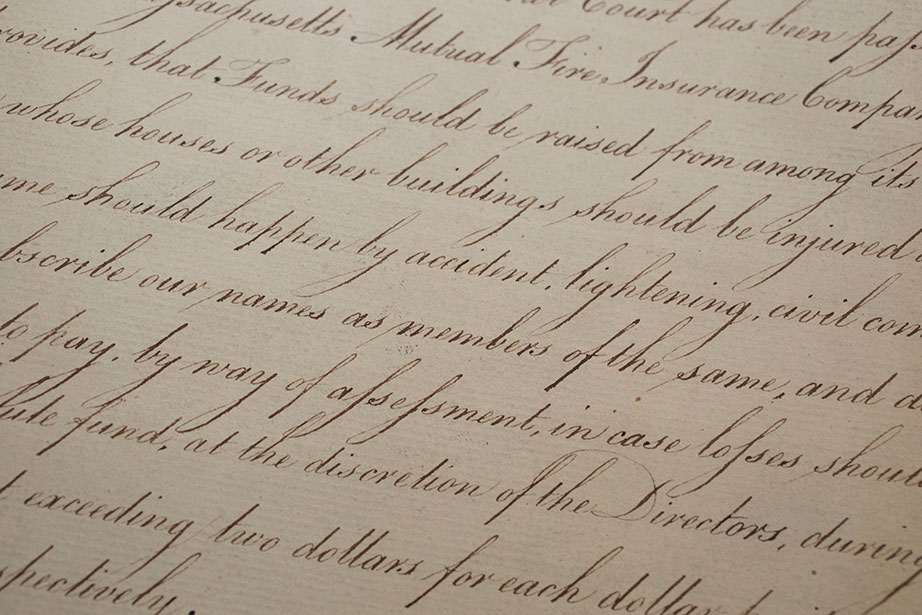 Court has been pas
ssachusetts Mutual Fire Insurance Compan
rovides, that Funds should be raised from among its
whose houses or other buildings should be injured
me should happen by accident, lightening, civil com
bscribe our names as members of the same, and a
to pay, by way of aſseſsment, in case loſses shoul
lute fund, at the discretion of the Directors, during
t exceeding two dollars for each dolla
spectively.